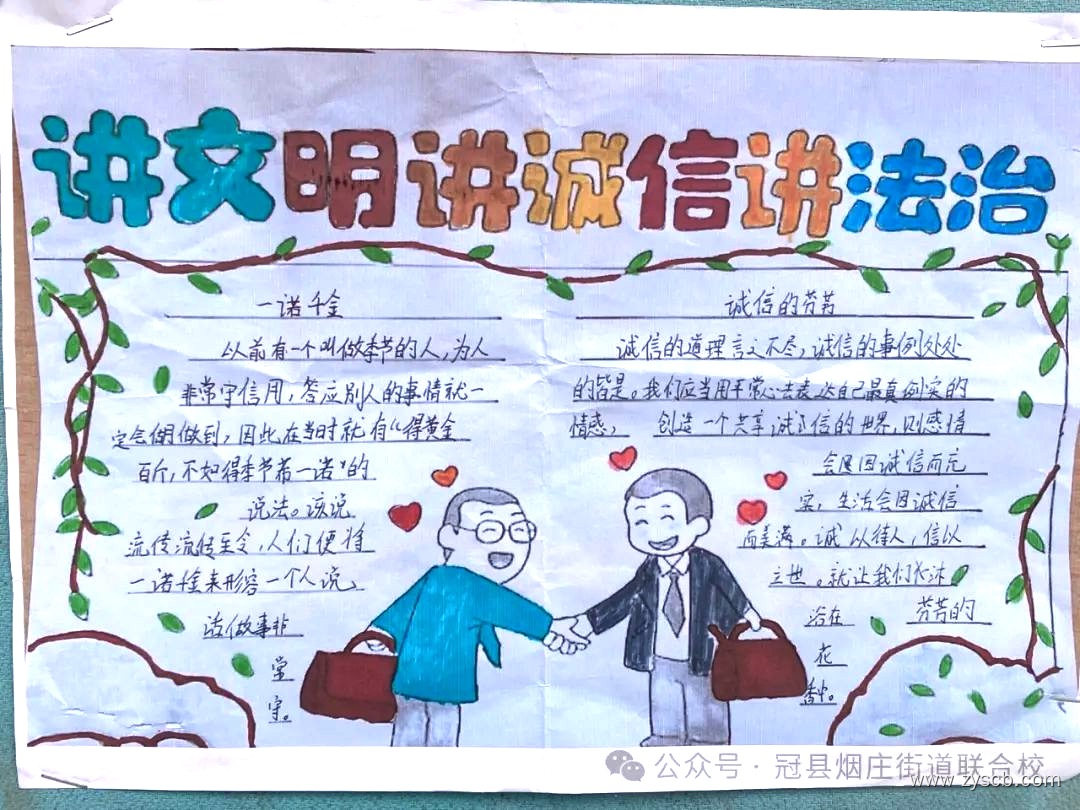 讲文明讲诚信讲法治
一诺千金
以前有一个叫做季节的人,为人
非常守信用,答应别人的事情就一
定会做到,因此在当时就有“得黄金
百斤,不如得季节布一诺”的
说法。该说
流传流传至今,人们便将
一诺千金来形容一个人说
话做事非
常
守。
诚信的芬芳
诚信的道理言之不尽,诚信的事例处处
的皆是。我们应当用平常心去表达自己最真实的
情感, 创造一个共享诚信的世界,则感情
会因诚信而充
实,生活会因诚信
而美满。诚以待人,信以
立世。就让我们沐
浴在 芬芳的
花
香中。
公众号·冠县烟庄街道联合校
www.zyscb.com